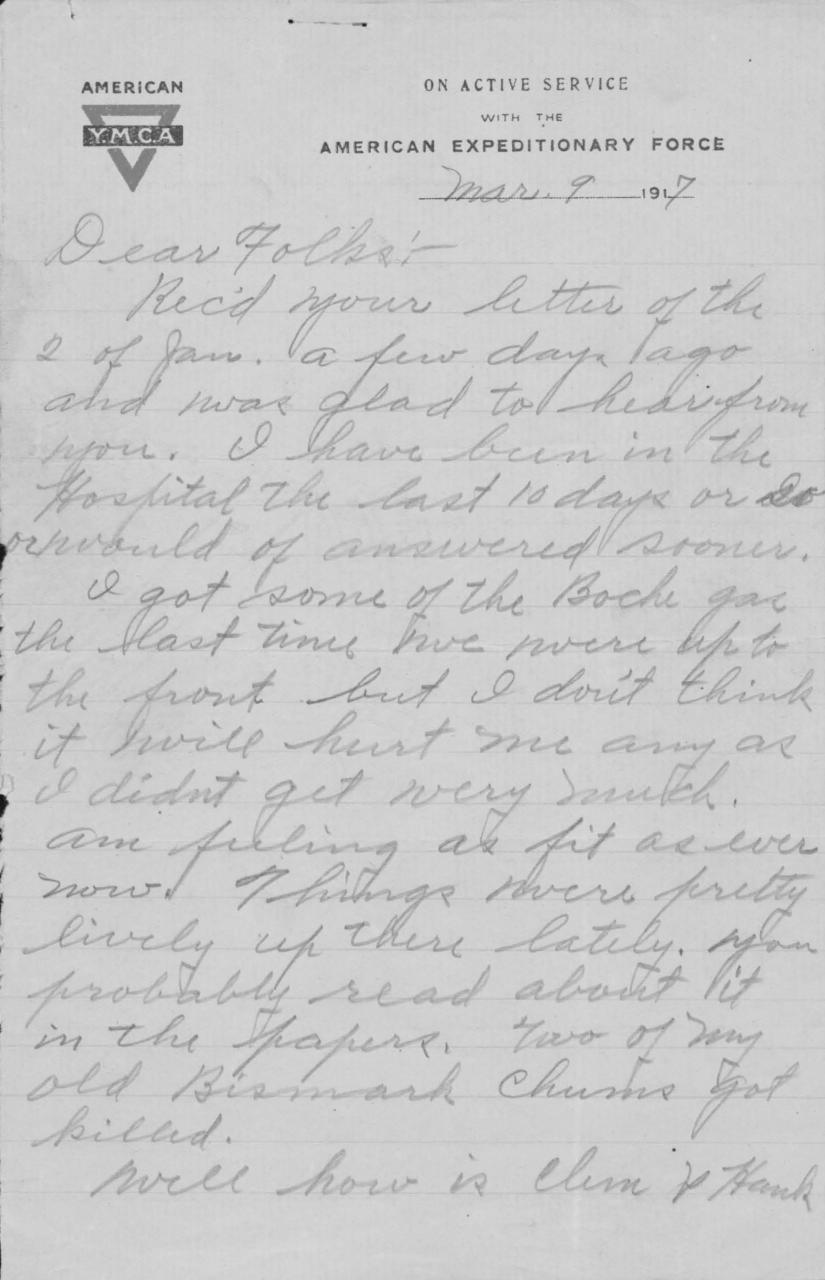 AMERICAN
Y.M.C.A
ON ACTIVE SERVICE
WITH THE
AMERICAN EXPEDITIONARY FORCE
Mar. 9 1917
Dear Folks:-
Rec'd your letter of the
2 of Jan. a few days ago
and was glad to hear from
you. I have been in the
Hospital the last 10 days or so
or would of answered sooner.
I got some of the Boche gas
the last time we were up to
the front but I don't think
it will hurt me any as
I didnt get very much.
am feeling as fit as ever
now. Things were pretty
lively up there lately. you
probably read about it
in the papers. Two of my
old Bismark Chums got
killed.
Well how is Clem & Hank